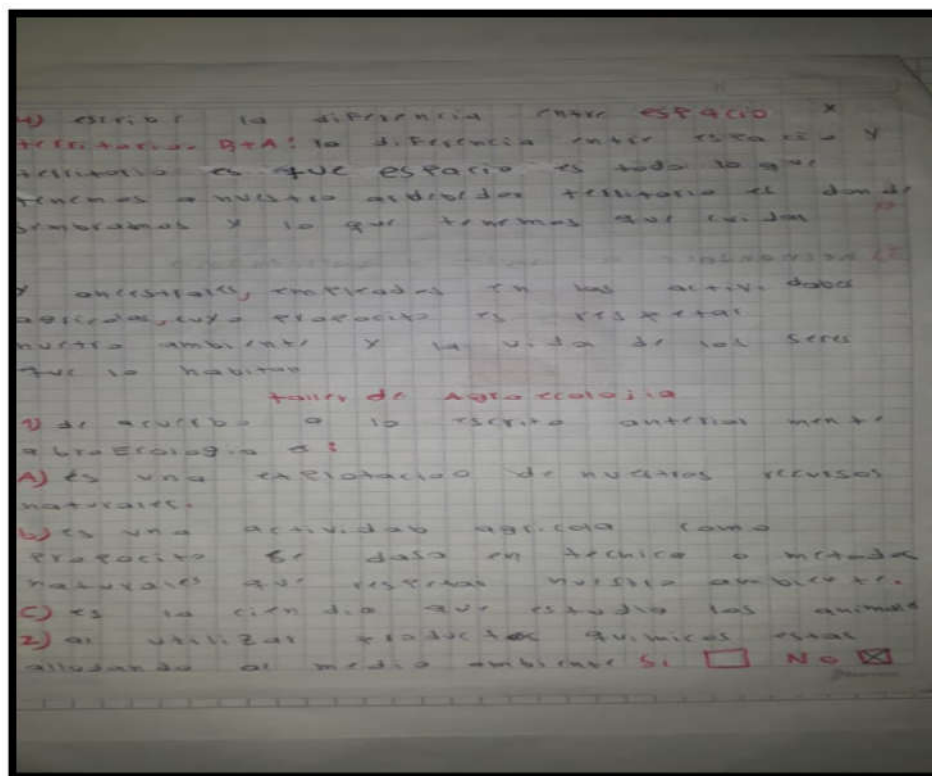 4) escribe la diferencia entre espacio y
territorio. R+A: la diferencia entre espacio y
territorio es que espacio es todo lo que
tenemos a nuestro ardededor territorio es donde
sembramos y lo que tenemos que cuidar
y ancestrales, empleadas en las activi dabes
agricolas, cuyo propocito es respetar
nuestro ambiente y la vida de los seres
que lo habitan
taller de Agro ecolojia
1) de acuerbo a lo escrito anterior mente
abroEcologia es:
A) es una explotacion de nuestros recursos
naturales.
b) es una actividab agricola como
propocito se basa en tecnico o metodos
naturales que respetan nuestro ambiente.
C) es la cien dia que estudia los animales
2) al utilizar productos quimicos estas
alludando al medio ambiente Si No